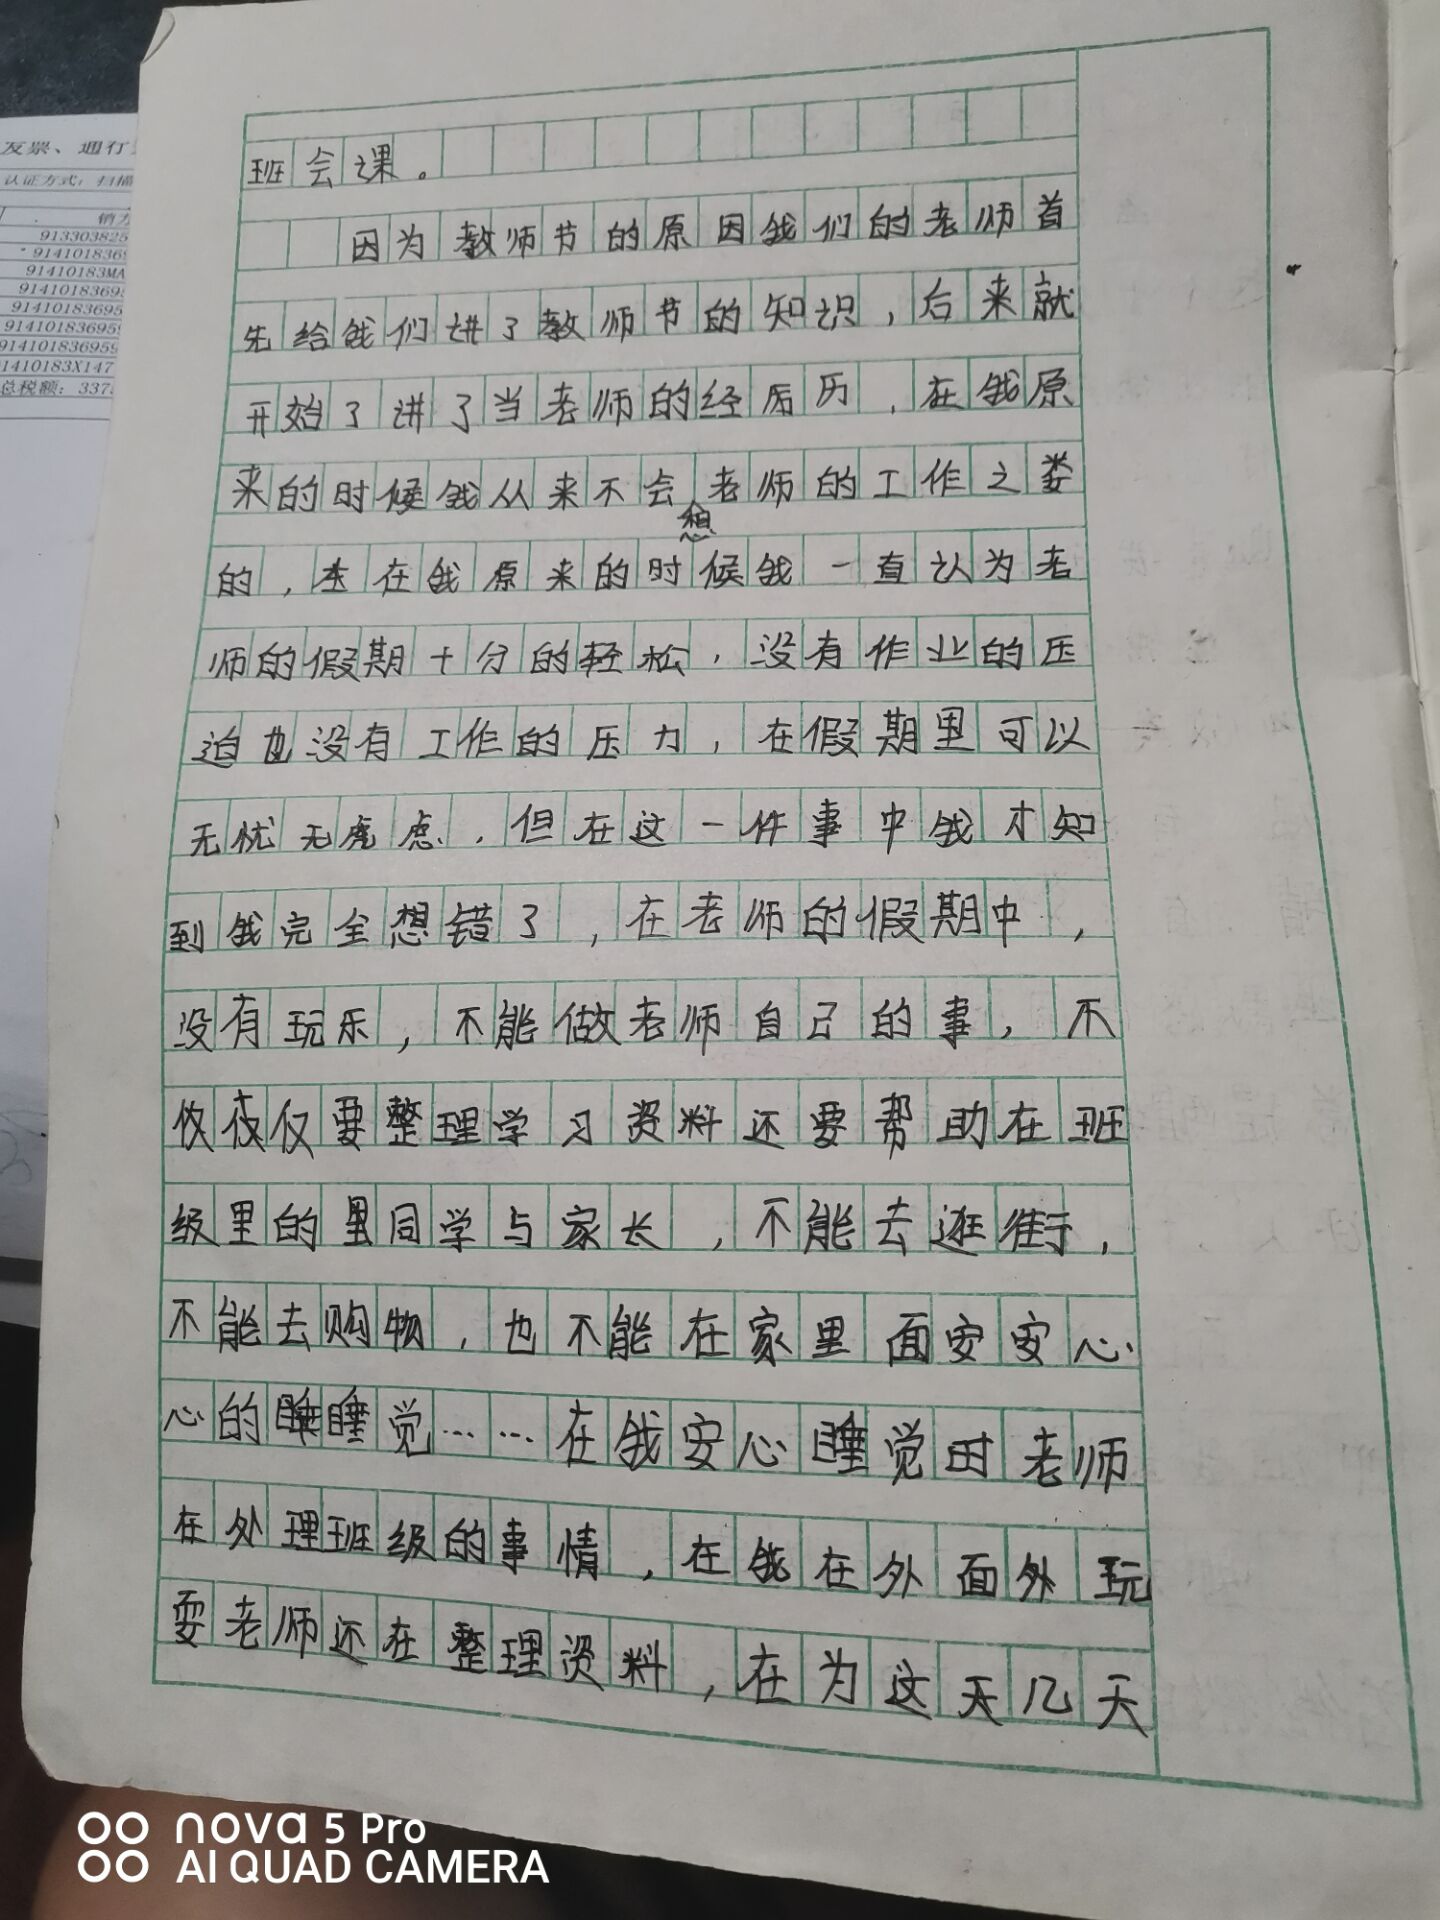 发票、通行
认证方式：扫描
销方
913303825
9141018369
91410183MA
914101836959
91410183X147
总税额：337
班会课。
因为教师节的原因我们的老师首
先给我们讲了教师节的知识，后来就
开始了讲了当老师的经厉历，在我原
来的时候我从来不会想老师的工作之娄
的，本在我原来的时候我一直认为老
师的假期十分的轻松，没有作业的压
迫也没有工作的压力，在假期里可以
无忧无虑虑，但在这一件事中我才知
到我完全想错了，在老师的假期中，
没有玩乐，不能做老师自己的事，不
仅要整理学习资料还要帮助在班
级里的里同学与家长，不能去逛街，
不能去购物，也不能在家里面安安心
心的睡睡觉……在我安心睡觉时老师
在处理班级的事情，在我在外面外玩
耍老师还在整理资料，在为这天几天
nova 5 Pro
AI QUAD CAMERA